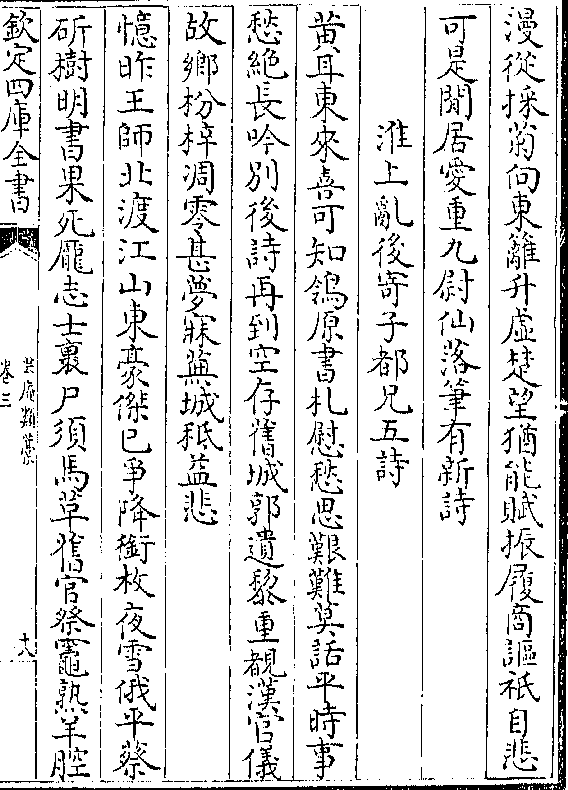 漫從採菊向東籬升虚楚望猶能賦振履商謳祇自悲
可是閒居愛重九尉仙落筆有新詩
淮上亂後寄子都兄五詩
黄耳東來喜可知鴒原書札慰愁思艱難莫話平時事
愁絶長吟别後詩再到空存舊城郭遺黎重覩漢官儀
故鄉枌梓凋零甚夢寐蕪城秪益悲
憶昨王師北渡江山東豪傑已爭降銜枚夜雪俄平蔡
斫樹明書果死龐志士裹尸須馬革舊官祭竈熟羊腔
欽定四庫全書
芸庵類藁
卷三
十八